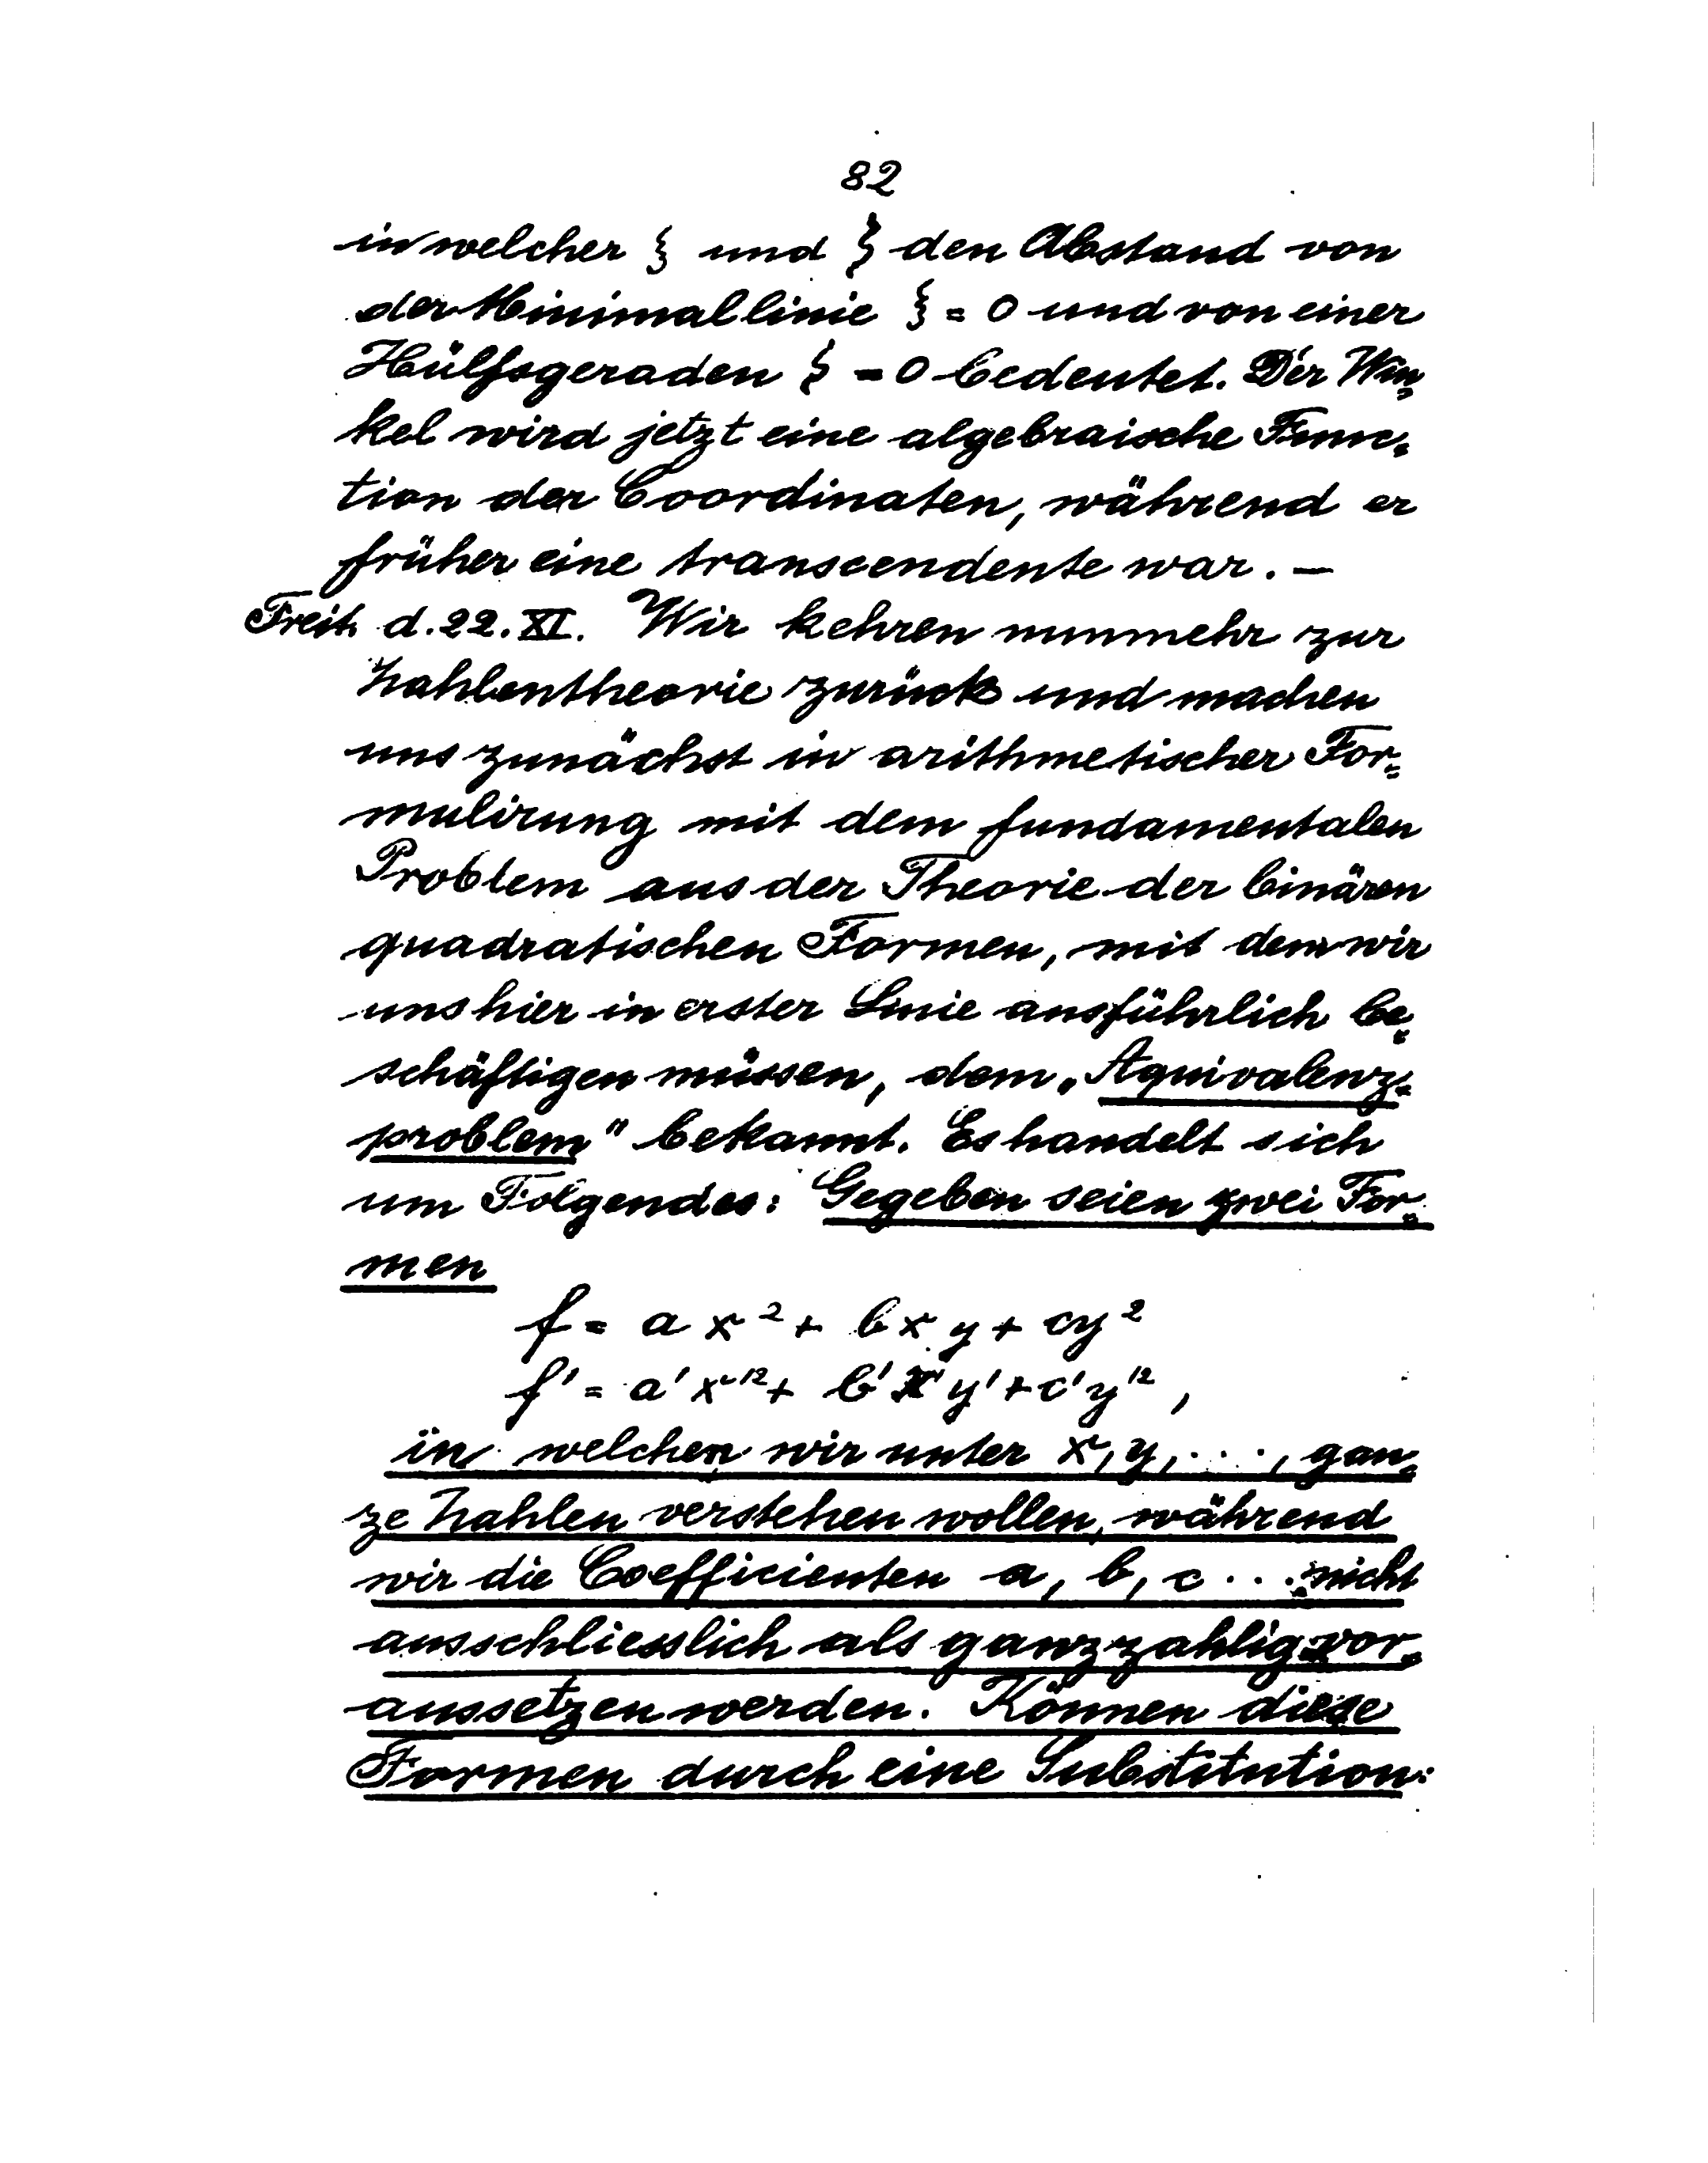 82
in welcher ξ und ζ den Abstand von
der Minimallinie ξ = 0 und von einer
Hülfsgeraden ζ = 0 bedeutet. Der Win-
kel wird jetzt eine algebraische Func-
tion der Coordinaten, während er
früher eine transcendente war. —
Freit. d. 22. XI. Wir kehren nunmehr zur
Zahlentheorie zurück und machen
uns zunächst in arithmetischer For-
mulirung mit dem fundamentalen
Problem aus der Theorie der binären
quadratischen Formen, mit dem wir
uns hier in erster Linie ausführlich be-
schäftigen müssen, dem „Äquivalenz-
problem" bekannt. Es handelt sich
um Folgendes: Gegeben seien zwei For-
men
f = a x² + b x y + cy²
f' = a' x'² + b' x' y' + c' y'²,
in welchen wir unter x, y, . . . , gan-
ze Zahlen verstehen wollen, während
wir die Coefficienten a, b, c . . . nicht
ausschliesslich als ganzzahlig vor-
aussetzen werden. Können diese
Formen durch eine Substitution: